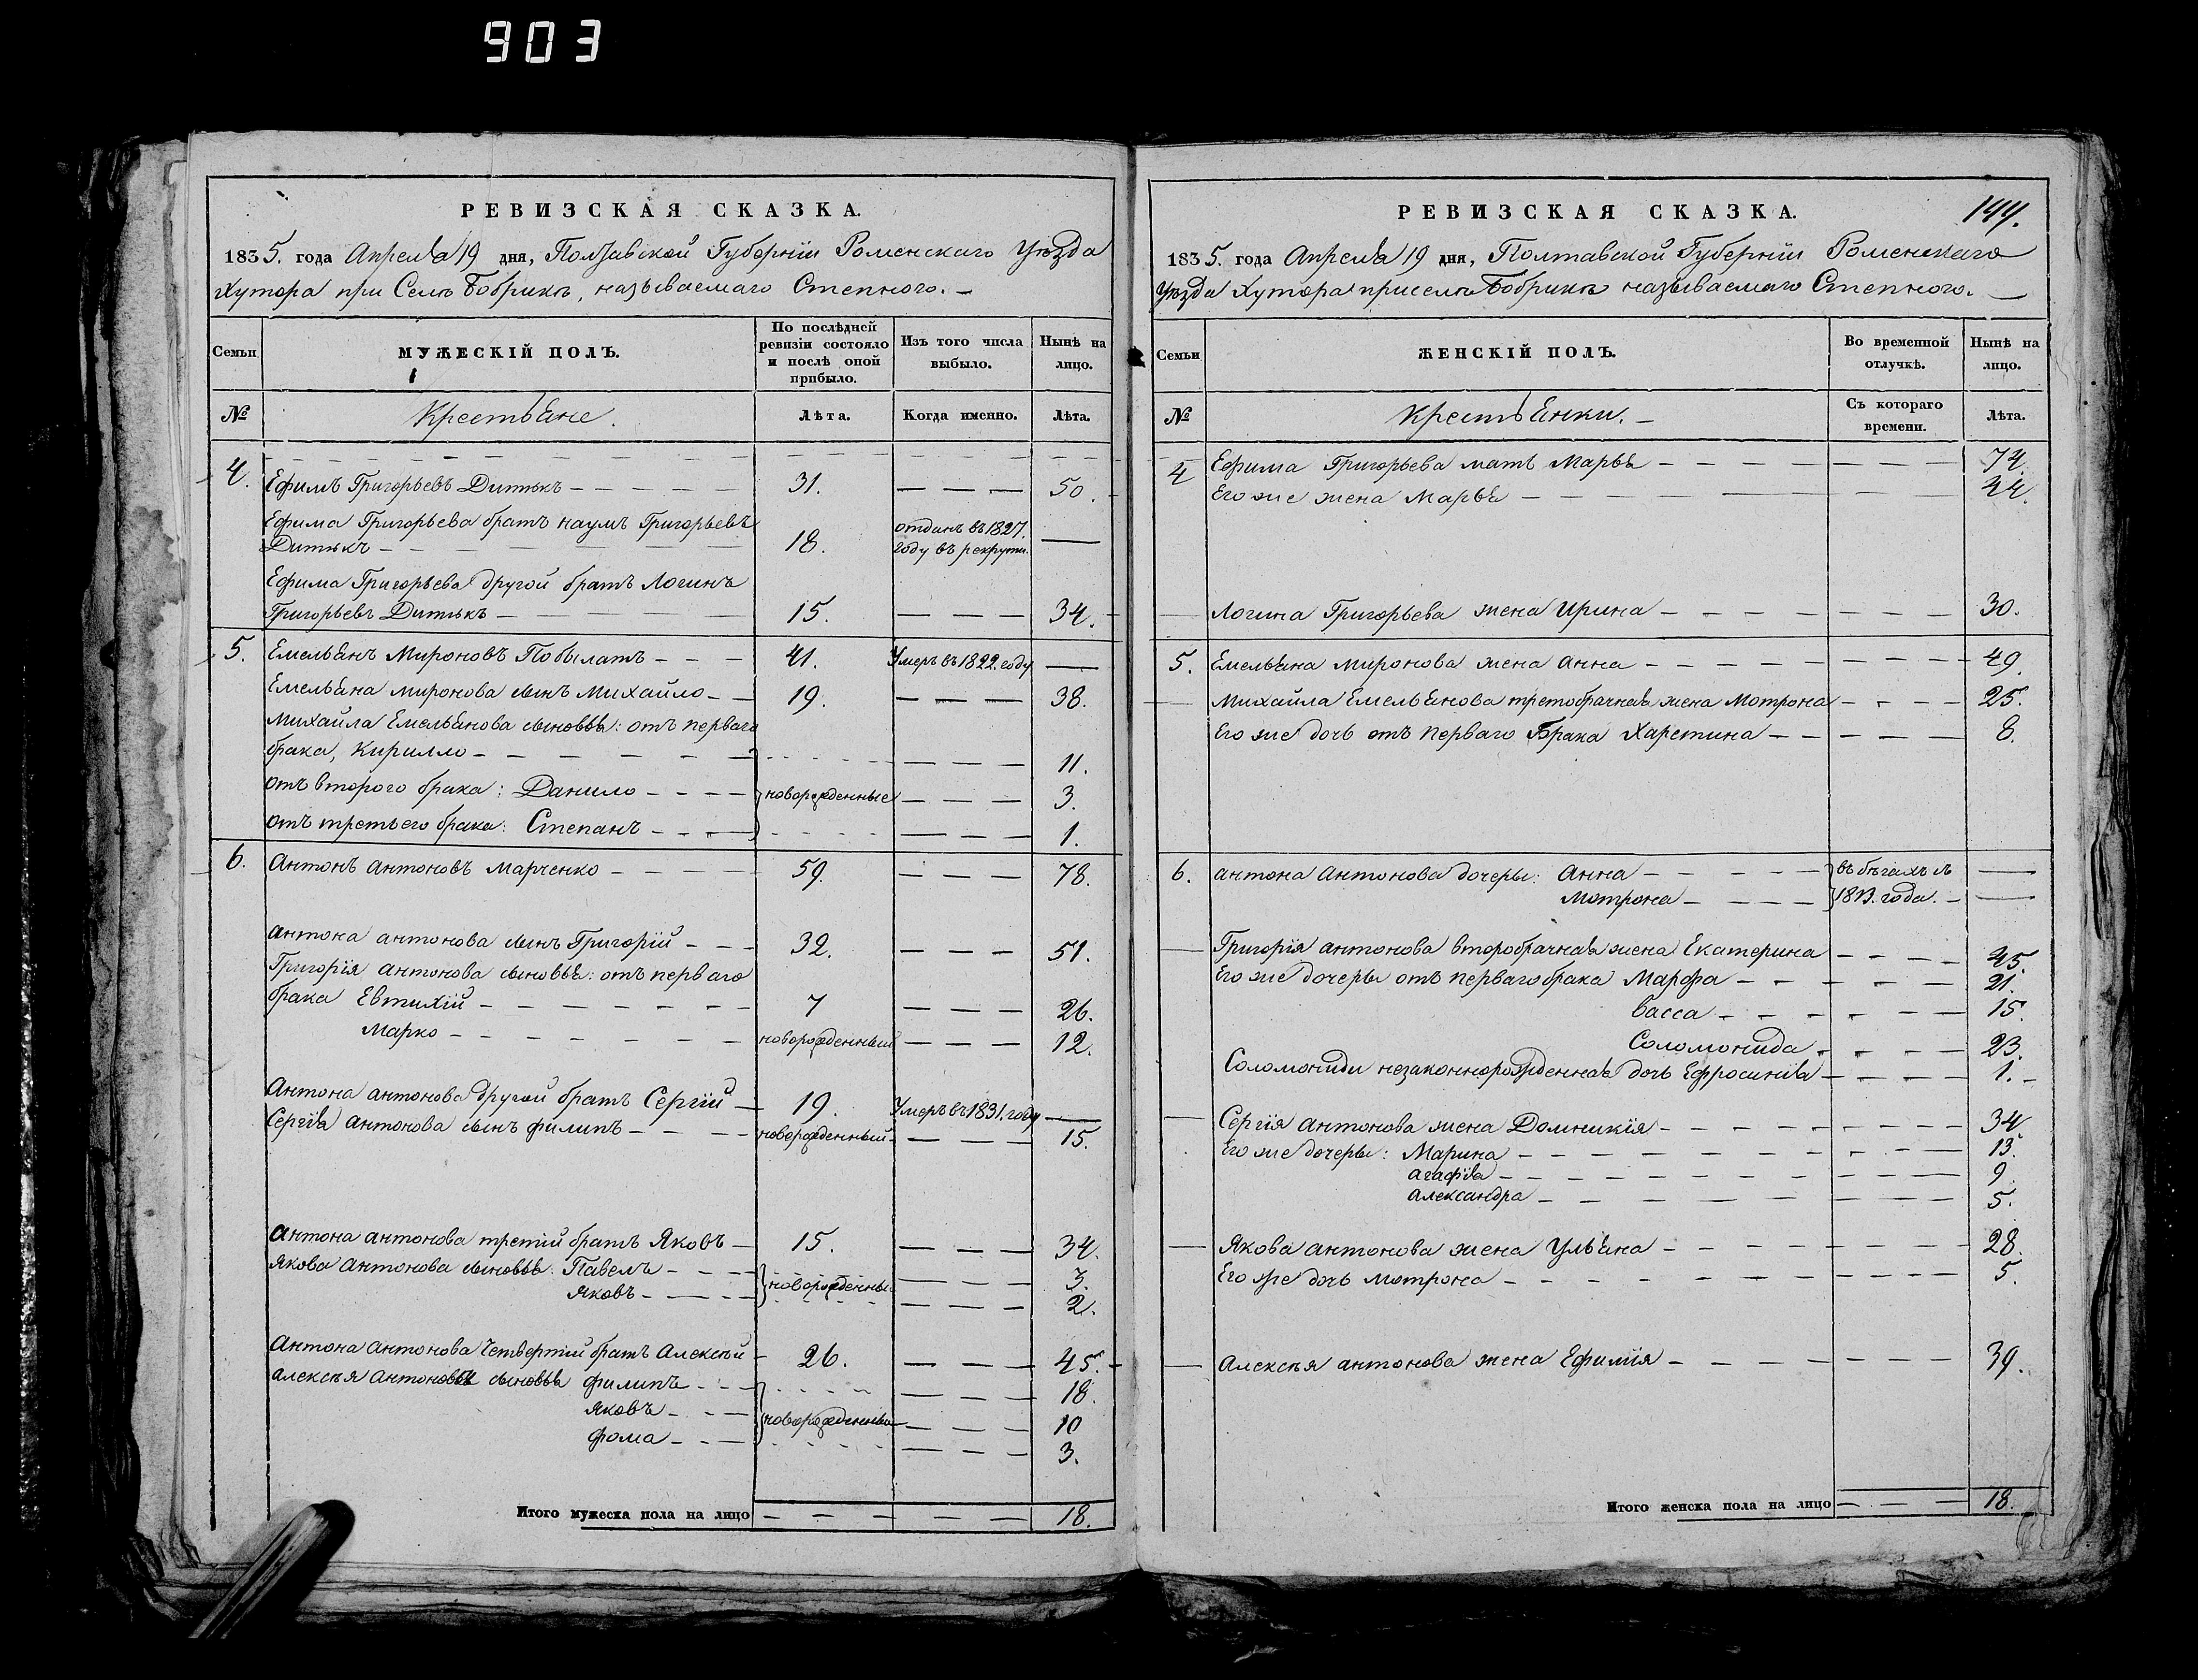 903
РЕВИЗСКАЯ СКАЗКА.
1835. года Апреля 19 дня, Полтавской Губерніи Роменскаго Уѣзда
Хутора при Селѣ Бобрикѣ, называемаго Степного. —
Семьи
МУЖЕСКІЙ ПОЛЪ.
По послѣдней ревизіи состояло и послѣ оной прибыло.
Изъ того числа выбыло.
Нынѣ на лицо.
№
Крестьяне.
Лѣта.
Когда именно.
Лѣта.
4. Ефимъ Григорьевъ Дитькъ — 31. — 50.
Ефима Григорьева братъ Наумъ Григорьевъ
Дитькъ — 18. отданъ въ 1827. году въ рекруты. —
Ефима Григорьева другой братъ Логинъ
Григорьевъ Дитькъ — 15. — 34.
5. Емельянъ Мироновъ Побылатъ — 41. Умеръ въ 1822. году —
Емельяна Миронова сынъ Михайло — 19. — 38.
Михайла Емельянова сыновья: отъ перваго
брака, Кирилло — 11.
отъ второго брака: Данило — новорожденные — 3.
отъ третьего брака: Степанъ — 1.
6. Антонъ Антоновъ Марченко — 59. — 78.
Антона Антонова сынъ Григорій — 32. — 51.
Григорія Антонова сыновья: отъ перваго
брака Евтихій — 7 — 26.
Марко — новорожденный — 12.
Антона Антонова другой братъ Сергій — 19. Умеръ въ 1831. году —
Сергія Антонова сынъ Филипъ — новорожденный — 15.
Антона Антонова третій братъ Яковъ — 15. — 34.
Якова Антонова сыновья: Павелъ — новорожденные — 3.
Яковъ — 2.
Антона Антонова Четвертый братъ Алексѣй — 26. — 45.
Алексѣя Антонова сыновья Филипъ — 18.
Яковъ — новорожденные — 10
Фома — 3.
Итого мужеска пола на лицо — — 18.
РЕВИЗСКАЯ СКАЗКА.
144.
1835. года Апреля 19 дня, Полтавской Губерніи Роменскаго
Уѣзда Хутора при селѣ Бобрикѣ называемаго Степного. —
Семьи
ЖЕНСКІЙ ПОЛЪ.
Во временной отлучкѣ.
Нынѣ на лицо.
№
Крестьянки. —
Съ котораго времени.
Лѣта.
4 Ефима Григорьева мать Марья — 74.
Его же жена Марья — 44.
Логина Григорьева жена Ирина — 30.
5. Емельяна Миронова жена Анна — 49.
Михайла Емельянова третобрачная жена Мотрона — 25.
Его же дочь отъ перваго Брака Харетина — 8.
6. Антона Антонова дочери: Анна — въ бѣгахъ съ —
Мотрона — 1813. года. —
Григорія Антонова второбрачная жена Екатерина — 45.
Его же дочери отъ перваго брака Марфа — 21.
Васса — 15.
Соломонида — 23.
Соломониды незаконнорожденная дочь Ефросинія — 1.
Сергія Антонова жена Домникія — 34
Его же дочери: Марина — 13.
Агафія — 9
Александра — 5.
Якова Антонова жена Ульяна — 28.
Его же дочь Мотрона — 5.
Алексѣя Антонова жена Ефимія — 39.
Итого женска пола на лицо — 18.